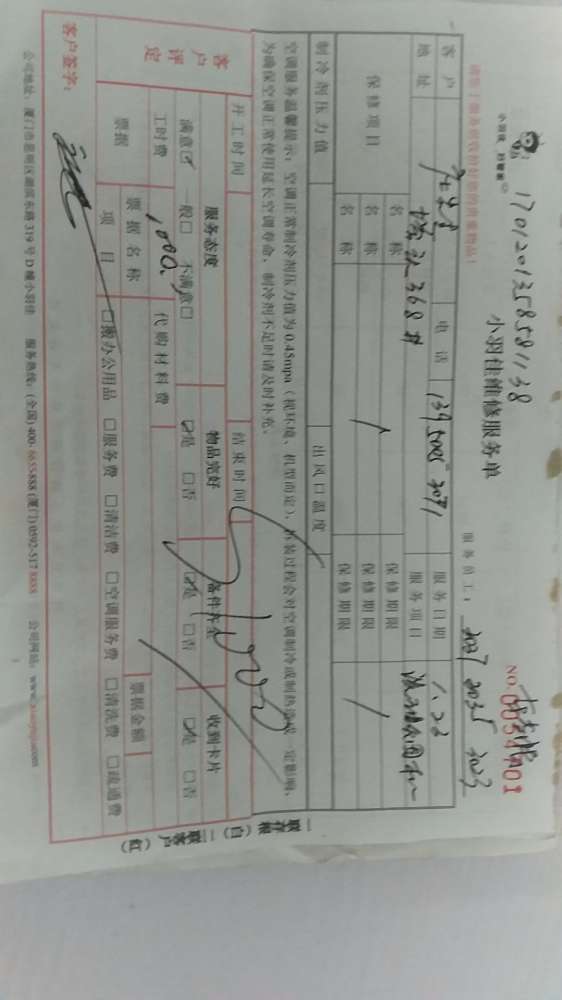 1701201358581138
小羽佳维修服务单
NO.
服务员工：
2035 2023
客户
电话
服务日期
1.23
地址
368#
服务项目
保修项目
名称
保修期限
名称
保修期限
名称
保修期限
制冷剂压力值
出风口温度
空调服务温馨提示：空调正常制冷剂压力值为0.45mpa（视环境、机型而定），拆装过程会对空调制冷或制热造成一定影响，
为确保空调正常使用延长空调寿命，制冷剂不足时请及时补充。
开工时间
结束时间
客户评定
服务态度
物品完好
备件齐全
收到卡片
满意☑ 一般□ 不满意□
☑是 □否
☑是 □否
☑是 □否
工时费
1000.
代购材料费
票据
票据名称
票据金额
项目
□搬办公用品 □服务费 □清洁费 □空调服务费 □清洗费 □疏通费
客户签字：
一联存根（白） 二联客户（红）
公司地址：厦门市思明区湖滨东路319号D幢小羽佳 服务热线：(全国) 400-6655888 (厦门) 0592-5178888 公司网站：